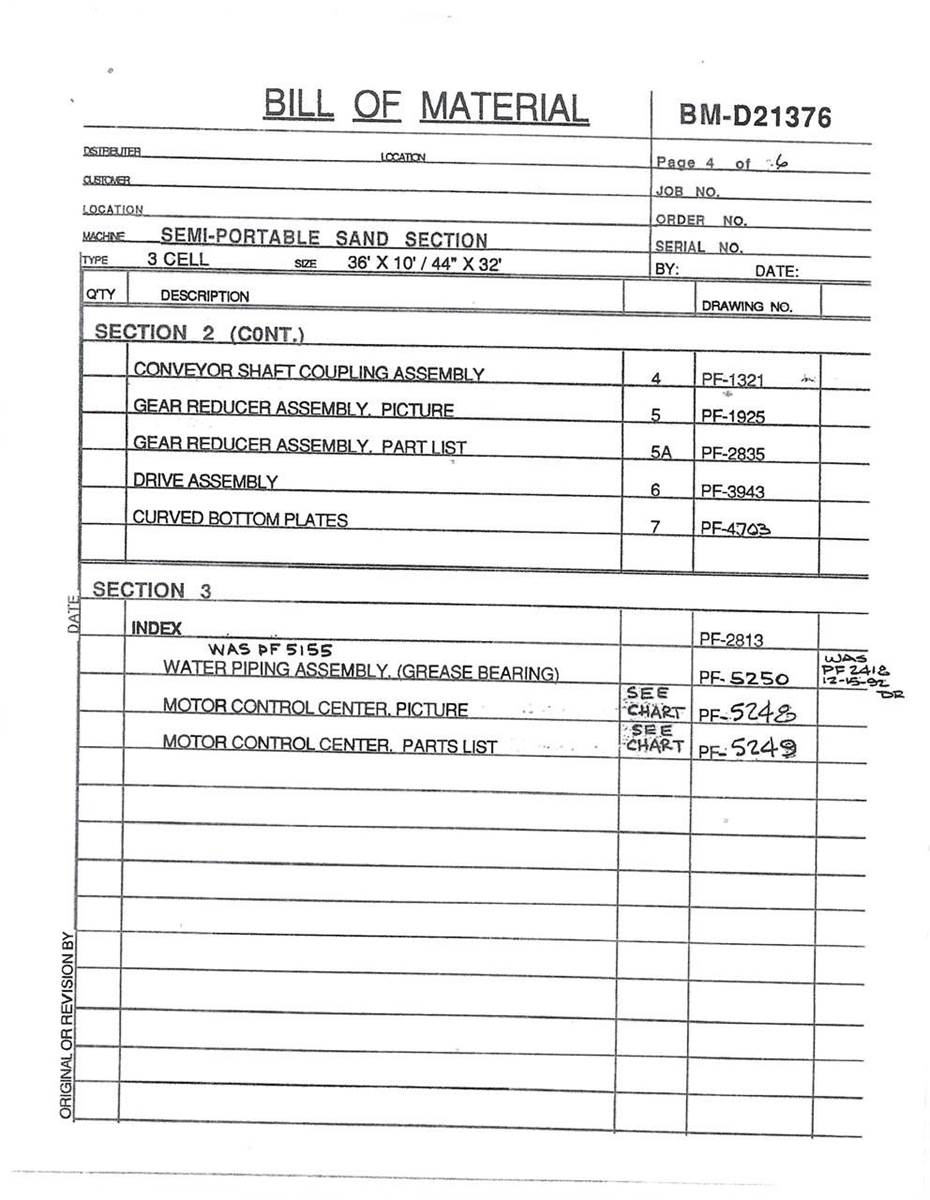 BILL OF MATERIAL
BM-D21376
DISTRIBUTER LOCATION
Page 4 of 6
CUSTOMER
JOB NO.
LOCATION
ORDER NO.
MACHINE SEMI-PORTABLE SAND SECTION
SERIAL NO.
TYPE 3 CELL SIZE 36' X 10' / 44" X 32'
BY: DATE:
Q'TY DESCRIPTION DRAWING NO.
SECTION 2 (CONT.)
CONVEYOR SHAFT COUPLING ASSEMBLY 4 PF-1321
GEAR REDUCER ASSEMBLY, PICTURE 5 PF-1925
GEAR REDUCER ASSEMBLY, PART LIST 5A PF-2835
DRIVE ASSEMBLY 6 PF-3943
CURVED BOTTOM PLATES 7 PF-4703
SECTION 3
INDEX PF-2813
WAS PF 5155
WATER PIPING ASSEMBLY, (GREASE BEARING) PF-5250
WAS
PF 2418
12-15-92
DR
MOTOR CONTROL CENTER, PICTURE SEE CHART PF-5248
MOTOR CONTROL CENTER, PARTS LIST SEE CHART PF-5249
DATE
ORIGINAL OR REVISION BY